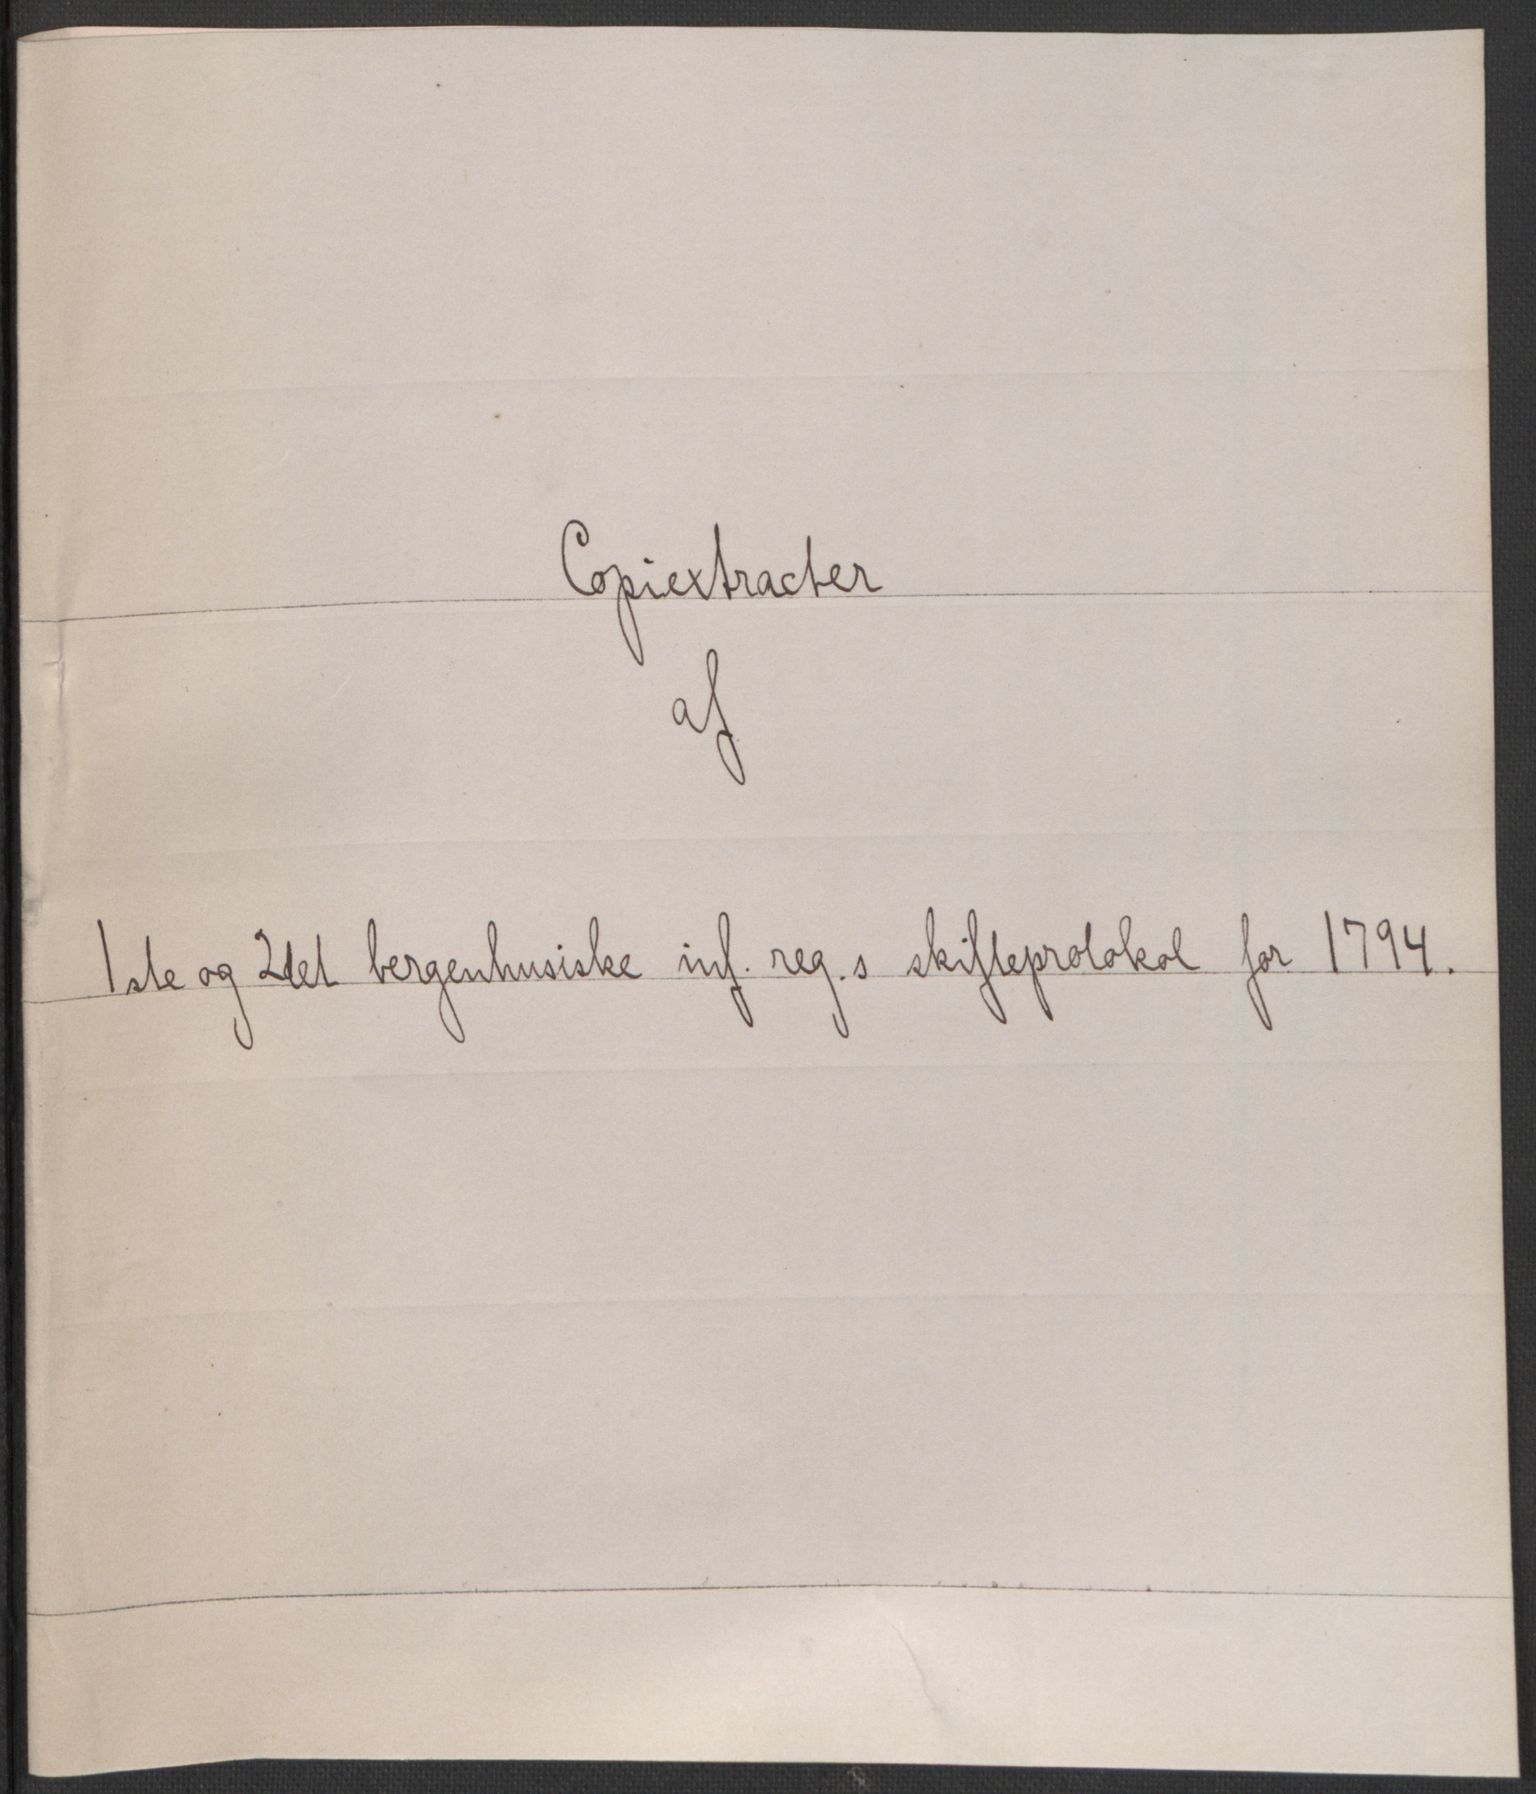 Copiextracter
af
1ste og 2det bergenhusiske inf. reg.s skifteprotokol for 1794.